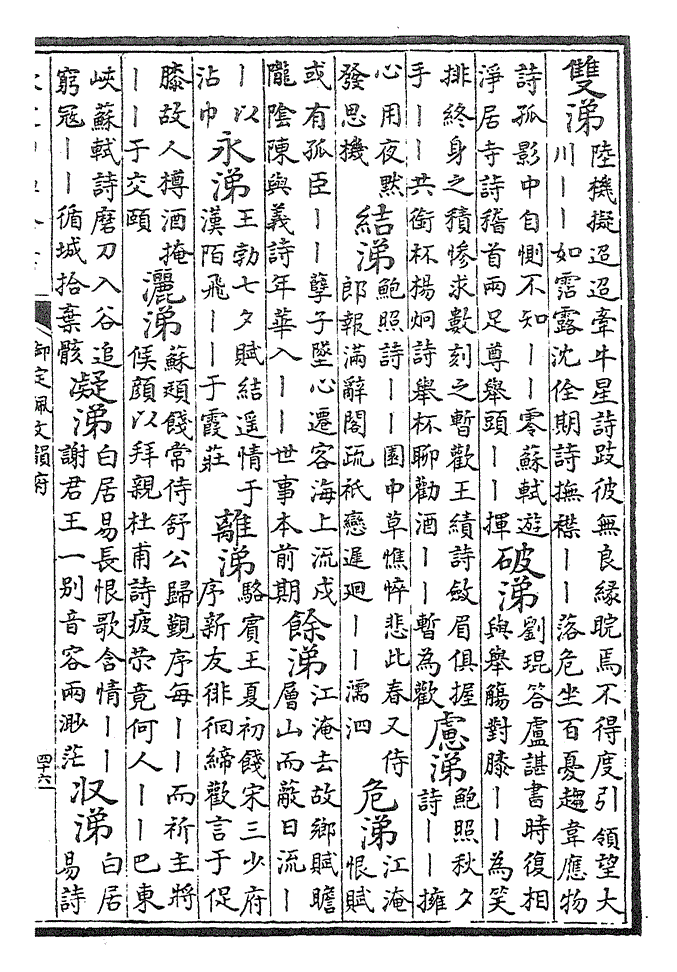 雙涕陸機擬迢迢牽牛星詩跂彼無良縁睆焉不得度引領望大
川丨丨如霑露沈佺期詩撫襟丨丨落危坐百憂趨韋應物
詩孤影中自惻不知丨丨零蘇軾遊
淨居寺詩稽首兩足尊舉頭丨丨揮
破涕劉琨答盧諶書時復相
與舉觴對膝丨丨為笑
排終身之積慘求數刻之暫歡王績詩斂眉俱握
手丨丨共銜杯楊炯詩舉杯聊勸酒丨丨暫為歡
慮涕鮑照秋夕
詩丨丨擁
心用夜黙
發思機
結涕鮑照詩丨丨園中草憔悴悲此春又侍
郎報滿辭閣疏祇戀遲迴丨丨濡泗
危涕江淹
恨賦
或有孤臣丨丨孽子墜心遷客海上流戍
隴陰陳與義詩年華入丨丨世事本前期
餘涕江淹去故鄉賦瞻
層山而蔽日流丨
丨以
沾巾
永涕王勃七夕賦結遥情于
漢陌飛丨丨于霞莊
離涕駱賓王夏初餞宋三少府
序新友徘徊締歡言于促
膝故人樽酒掩
丨丨于交頤
灑涕蘇頲餞常侍舒公歸覲序每丨丨而祈主將
候顔以拜親杜甫詩疲苶竟何人丨丨巴東
峽蘇軾詩磨刀入谷追
窮冦丨丨循城拾棄骸
凝涕白居易長恨歌含情丨丨
謝君王一别音容兩渺茫
収涕白居
易詩
御定佩文韻府
四十六